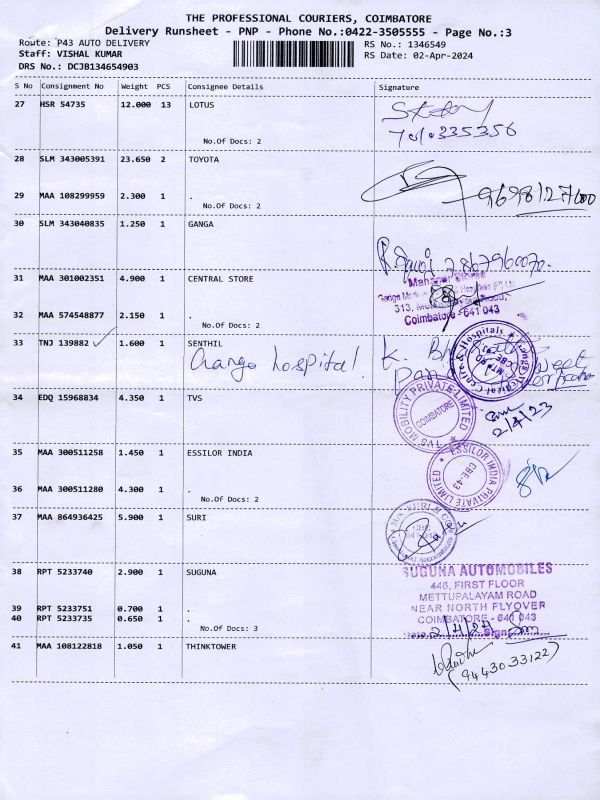 THE PROFESSIONAL COURIERS, COIMBATORE
Delivery Runsheet - PNP - Phone No.:0422-3505555 - Page No.:3
Route: P43 AUTO DELIVERY RS No.: 1346549
Staff: VISHAL KUMAR RS Date: 02-Apr-2024
DRS No.: DCJB134654903
S No Consignment No Weight PCS Consignee Details Signature
27 HSR 54735 12.000 13 LOTUS
335356
No.Of Docs: 2
28 SLM 343005391 23.650 2 TOYOTA
29 MAA 108299959 2.300 1 .
No.Of Docs: 2
30 SLM 343040835 1.250 1 GANGA
7867960070
31 MAA 301002351 4.900 1 CENTRAL STORE
Manager
313,
Coimbatore - 641 043
32 MAA 574548877 2.150 1 .
No.Of Docs: 2
33 TNJ 139882 1.600 1 SENTHIL
Ganga hospital
34 EDQ 15968834 4.350 1 TVS
TVS MOBILITY PRIVATE LIMITED
COIMBATORE
2/4/23
35 MAA 300511258 1.450 1 ESSILOR INDIA
ESSILOR INDIA PRIVATE LIMITED
CBE-43
36 MAA 300511280 4.300 1 .
No.Of Docs: 2
37 MAA 864936425 5.900 1 SURI
38 RPT 5233740 2.900 1 SUGUNA
SUGUNA AUTOMOBILES
446, FIRST FLOOR
METTUPALAYAM ROAD
NEAR NORTH FLYOVER
COIMBATORE - 641 043
39 RPT 5233751 0.700 1 .
40 RPT 5233735 0.650 1 .
No.Of Docs: 3
2/4/24
41 MAA 108122818 1.050 1 THINKTOWER
(9443033122)